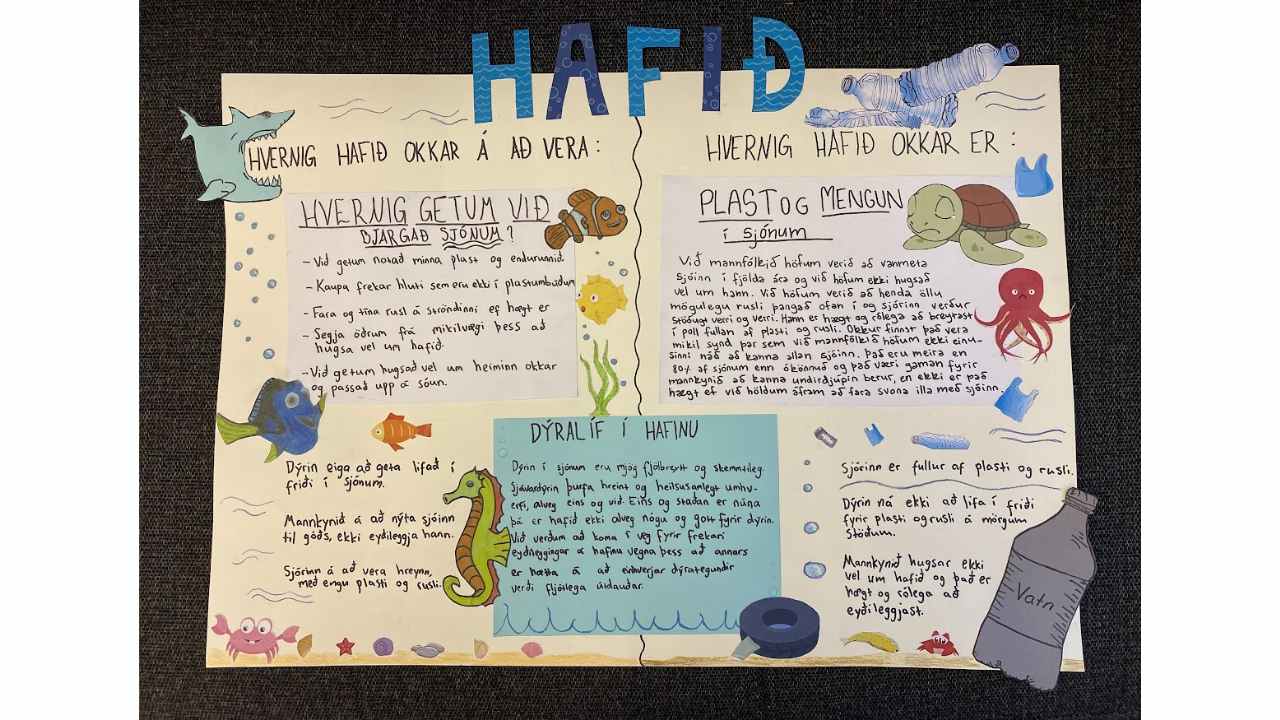 HAFIÐ
HVERNIG HAFIÐ OKKAR Á AÐ VERA:
HVERNIG GETUM VIÐ
BJARGAÐ SJÓNUM?
- Við getum notað minna plast og endurunnið.
- Kaupa frekar hluti sem eru ekki í plastumbúðum
- Fara og tína rusl á ströndinni ef hægt er
- Segja öðrum frá mikilvægi þess að
hugsa vel um hafið.
- Við getum hugsað vel um heiminn okkar
og passað upp á sóun.
Dýrin eiga að geta lifað í
friði í sjónum.
Mannkynið á að nýta sjóinn
til góðs, ekki eyðileggja hann.
Sjórinn á að vera hreynn,
með engu plasti og rusli.
DÝRALÍF Í HAFINU
Dýrin í sjónum eru mjög fjölbreytt og skemmtileg.
Sjávardýrin þurfa hreint og heilsusamlegt umhv-
erfi, alveg eins og við. Eins og staðan er núna
þá er hafið ekki alveg nógu og gott fyrir dýrin.
Við verðum að koma í veg fyrir frekari
eyðileggingar á hafinu vegna þess að annars
er hætta á að einhverjar dýrategundir
verði fljótlega útdauðar.
HVERNIG HAFIÐ OKKAR ER:
PLAST OG MENGUN
í sjónum
Við mannfólkið höfum verið að vanmeta
sjóinn í fjölda ára og við höfum ekki hugsað
vel um hann. Við höfum verið að henda öllu
mögulegu rusli þangað ofan í og sjórinn verður
stöðugt verri og verri. Hann er hægt og rólega að breytast
í poll fullan af plasti og rusli. Okkur finnst það vera
mikil synd þar sem við mannfólkið höfum ekki einu-
sinni náð að kanna allan sjóinn. Það eru meira en
80% af sjónum enn ókönnuð og það væri gaman fyrir
mannkynið að kanna undirdjúpin betur, en ekki er það
hægt ef við höldum áfram að fara svona illa með sjóinn.
Sjórinn er fullur af plasti og rusli.
Dýrin ná ekki að lifa í friði
fyrir plasti og rusli á mörgum
stöðum.
Mannkynið hugsar ekki
vel um hafið og það er
hægt og rólega að
eyðileggjast.
Vatn